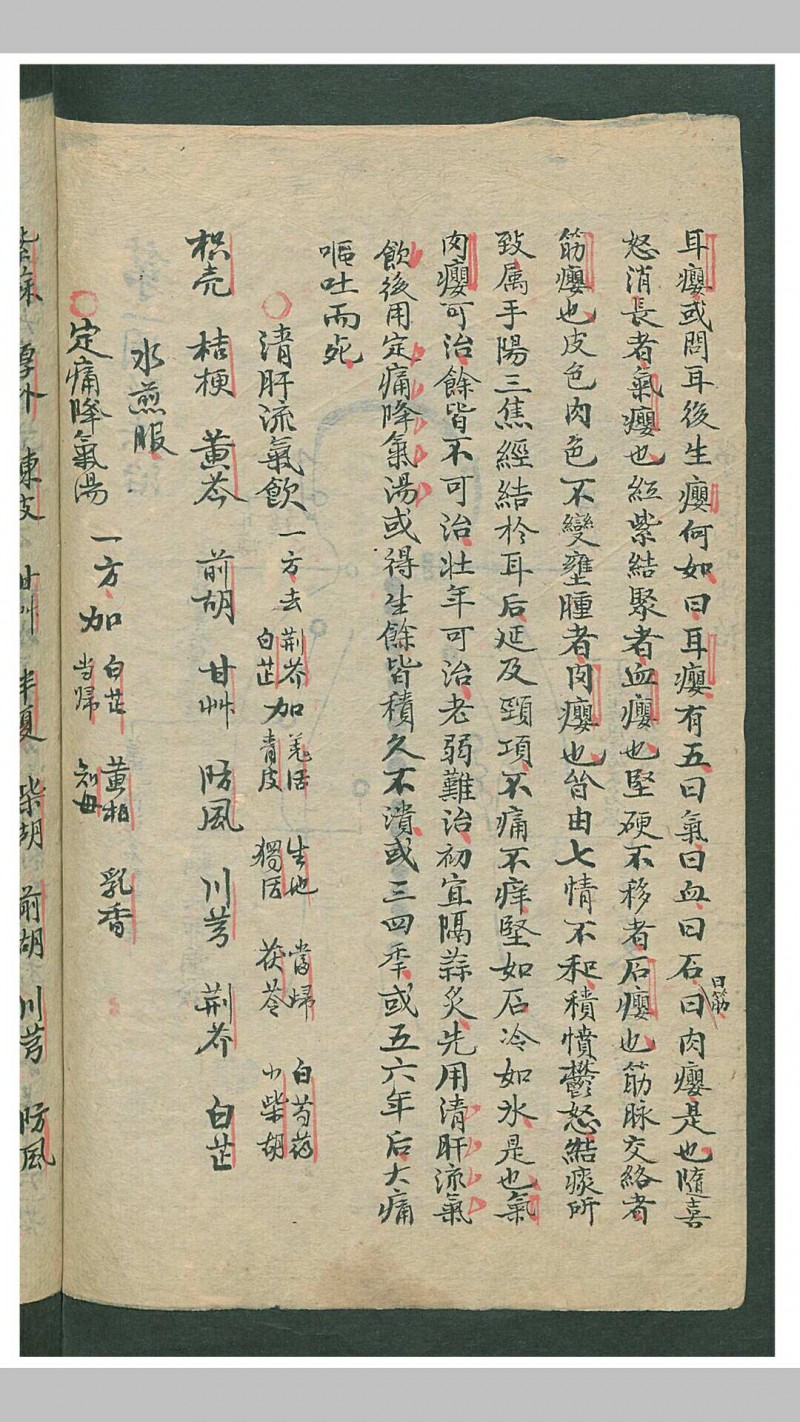 耳癭或問耳後生癭何如曰耳癭有五曰氣曰血曰石曰筋曰肉癭是也隨喜
怒消長者氣癭也紅紫結聚者血癭也堅硬不移者石癭也筋脉交絡者
筋癭也皮色肉色不變壅腫者肉癭也皆由七情不和積憤鬱怒結痰所
致属手陽三焦經結於耳后延及頸項不痛不痒堅如石冷如氷是也氣
肉癭可治餘皆不可治壮年可治老弱難治初宜隔蒜炙先用清肝流氣
飲後用定痛降氣湯或得生餘皆積久不潰或三四季或五六年后大痛
嘔吐而死
清肝流氣飲 一方去荆芥白芷加羌活青皮 生地獨活 當歸茯苓 白芍药小柴胡
枳壳 桔梗 黄芩 前胡 甘艸 防風 川芎 荆芥 白芷
水煎服
定痛降氣湯 一方加白芷当归 黄柏知母 乳香
紫蘇 厚朴 陳皮 甘艸 半夏 柴胡 前胡 川芎 防風